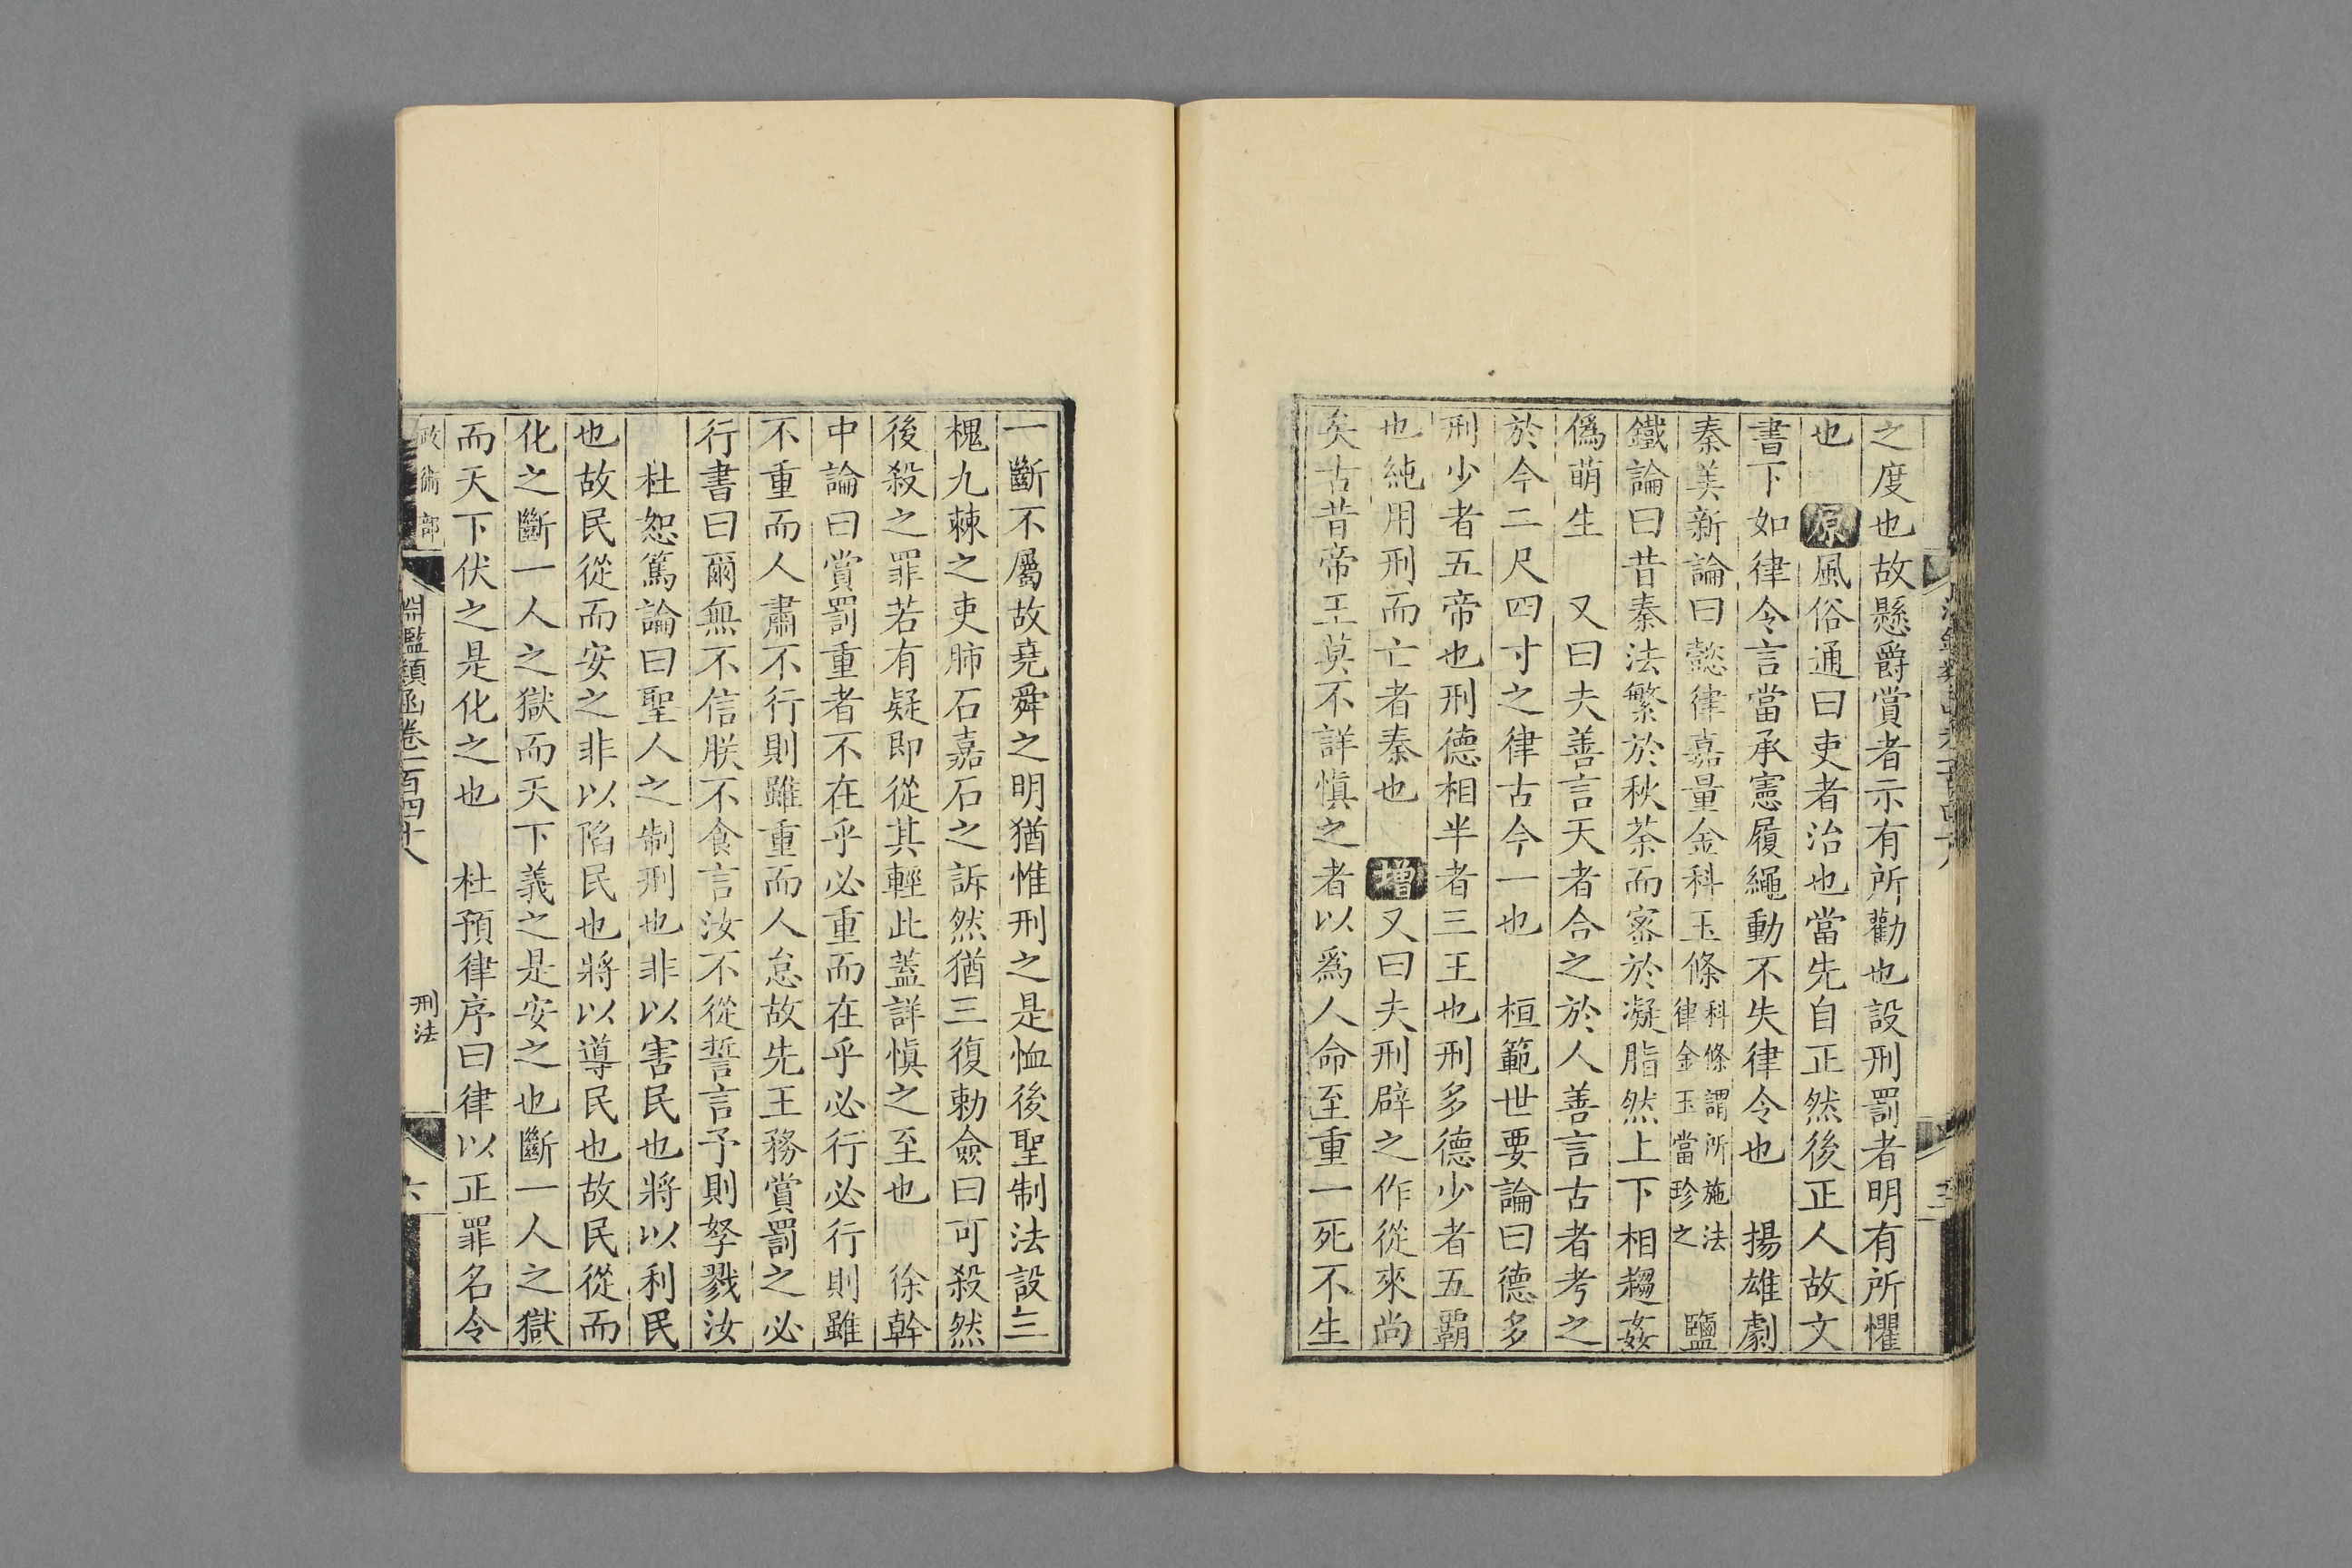 之度也故懸爵賞者示有所勸也設刑罰者明有所懼
也 原風俗通曰吏者治也當先自正然後正人故文
書下如律令言當承憲履繩動不失律令也 揚雄劇
秦美新論曰懿律嘉量金科玉條科條謂所施法律金玉當珍之 鹽
鐵論曰昔秦法繁於秋荼而密於凝脂然上下相趨姦
僞萌生 又曰夫善言天者合之於人善言古者考之
於今二尺四寸之律古今一也 桓範世要論曰德多
刑少者五帝也刑德相半者三王也刑多德少者五霸
也純用刑而亡者秦也 增又曰夫刑辟之作從來尚
矣古昔帝王莫不詳慎之者以爲人命至重一死不生
一斷不屬故堯舜之明猶惟刑之是恤後聖制法設三
槐九棘之吏肺石嘉石之訴然猶三復勅僉曰可殺然
後殺之罪若有疑即從其輕此蓋詳慎之至也 徐幹
中論曰賞罰重者不在乎必重而在乎必行必行則雖
不重而人肅不行則雖重而人怠故先王務賞罰之必
行書曰爾無不信朕不食言汝不從誓言予則孥戮汝
杜恕篤論曰聖人之制刑也非以害民也將以利民
也故民從而安之非以陷民也將以導民也故民從而
化之斷一人之獄而天下義之是安之也斷一人之獄
而天下伏之是化之也 杜預律序曰律以正罪名令
政術部 淵鑑類函卷一百四十八 刑法 六